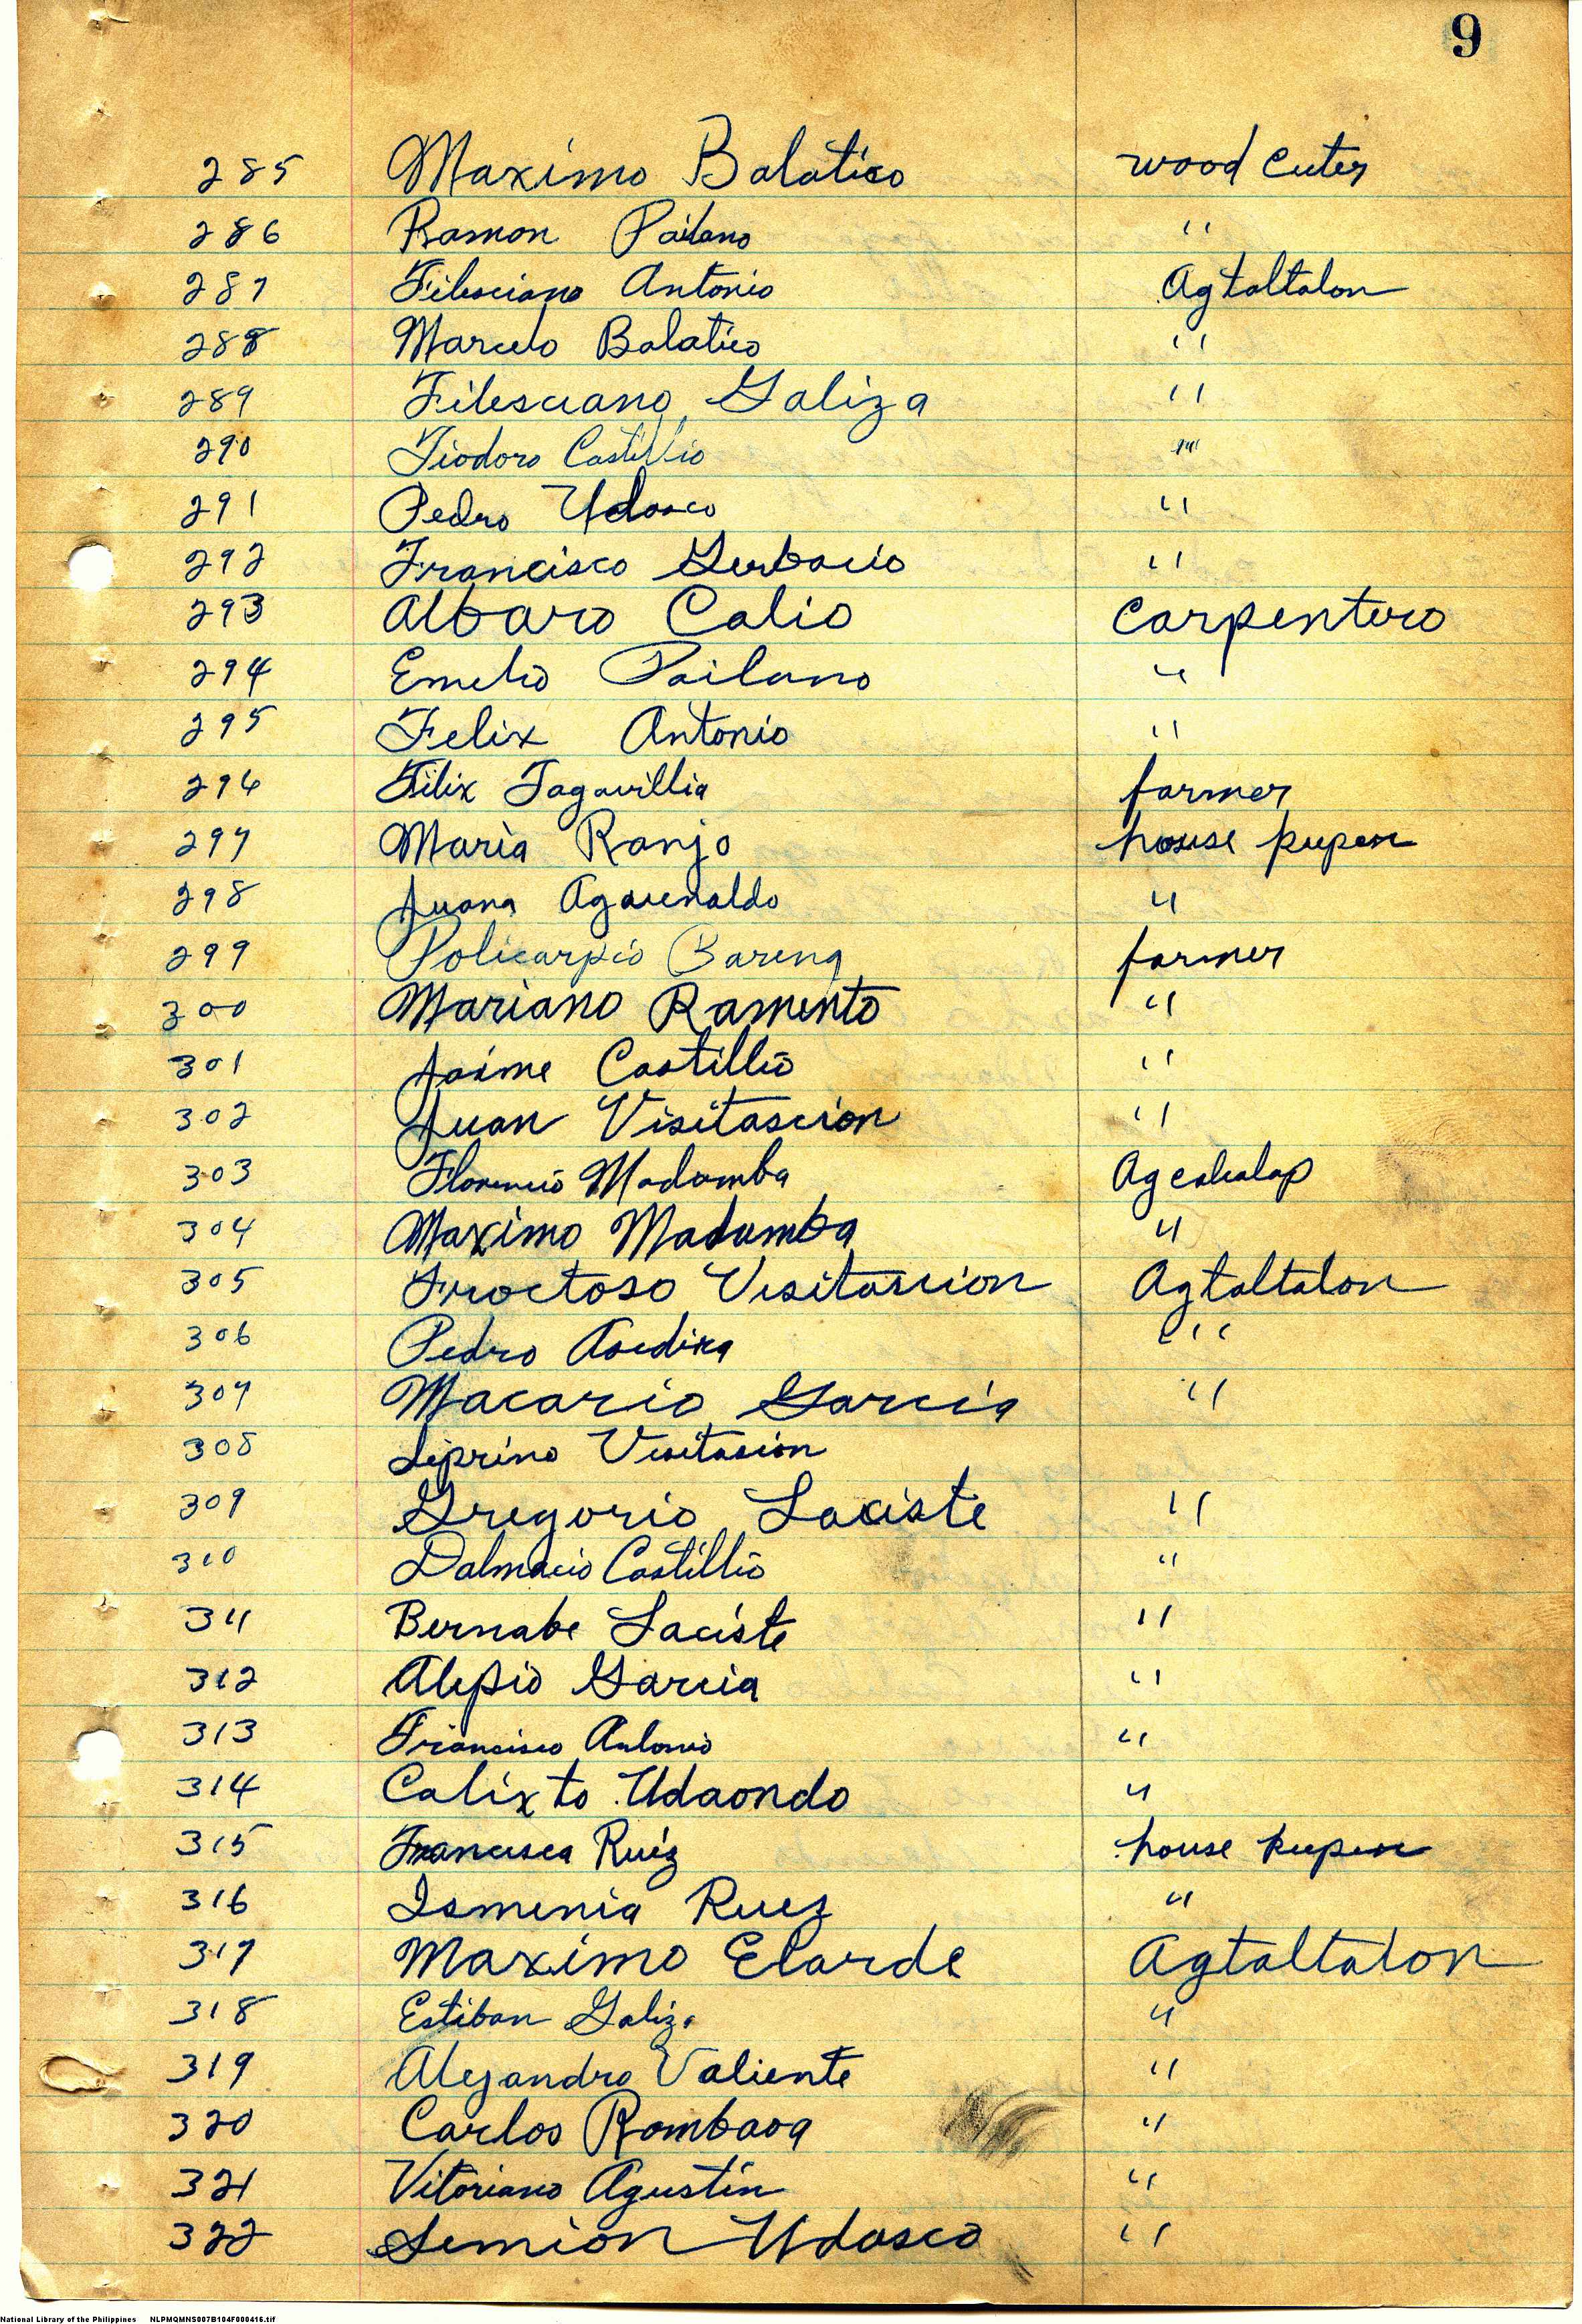 9
285 Maximo Balatico wood cuter
286 Ramon Pailano "
287 Filesciano Antonio Agtaltalon
288 Marcelo Balatico "
289 Filesciano Galiza "
290 Tiodoro Castillio "
291 Pedro Udasco "
292 Francisco Gerbacio "
293 Albaro Calio Carpentero
294 Emelio Pailano "
295 Felix Antonio "
296 Filix Tagavillia farmer
297 Maria Ranjo house
298 Juana Agarenaldo "
299 Policarpio Bareng farmer
300 Mariano Ramento "
301 Jaime Castillio "
302 Juan Visitascion "
303 Florencio Madamba
304 Maximo Madamba "
305 Froctoso Visitascion Agtaltalon
306 Pedro "
307 Macario Garcia "
308 Siprino Visitasion
309 Gregorio Laciste "
310 Dalmacio Castillio "
311 Bernabe Laciste "
312 Alepio Garcia "
313 Francisco Antonio "
314 Calixto Udaondo "
315 Francisca Ruiz house
316 Ismenia Ruez "
317 Maximo Elarde Agtaltalon
318 Estiban Galiza "
319 Alejandro Valiente "
320 Carlos Rombaoa "
321 Vitoriano Agustin "
322 Semion Udasco "
National Library of the Philippines NLPMQMNS007B104F000416.tif